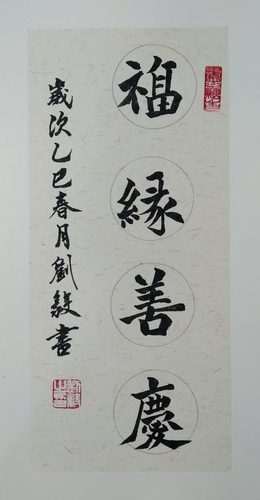 福緣善慶
歲次乙巳春月劉毅書